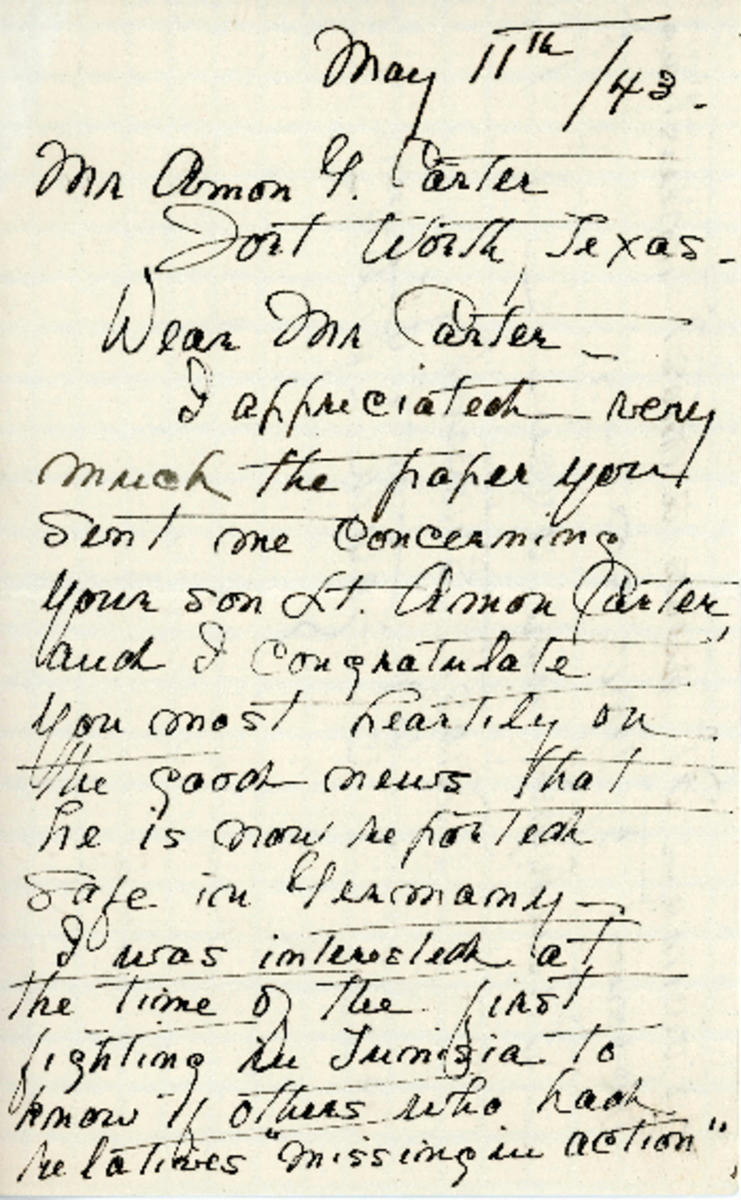 May 11th/43.
Mr Amon G. Carter
Fort Worth, Texas-
Dear Mr Carter-
I appreciated very
much the paper you
sent me concerning
your son Lt. Amon Carter,
and I congratulate
you most heartily on
the good news that
he is now reported
safe in Germany-
I was interested at
the time of the first
fighting in Tunisia to
know if others who had
relatives "missing in action",